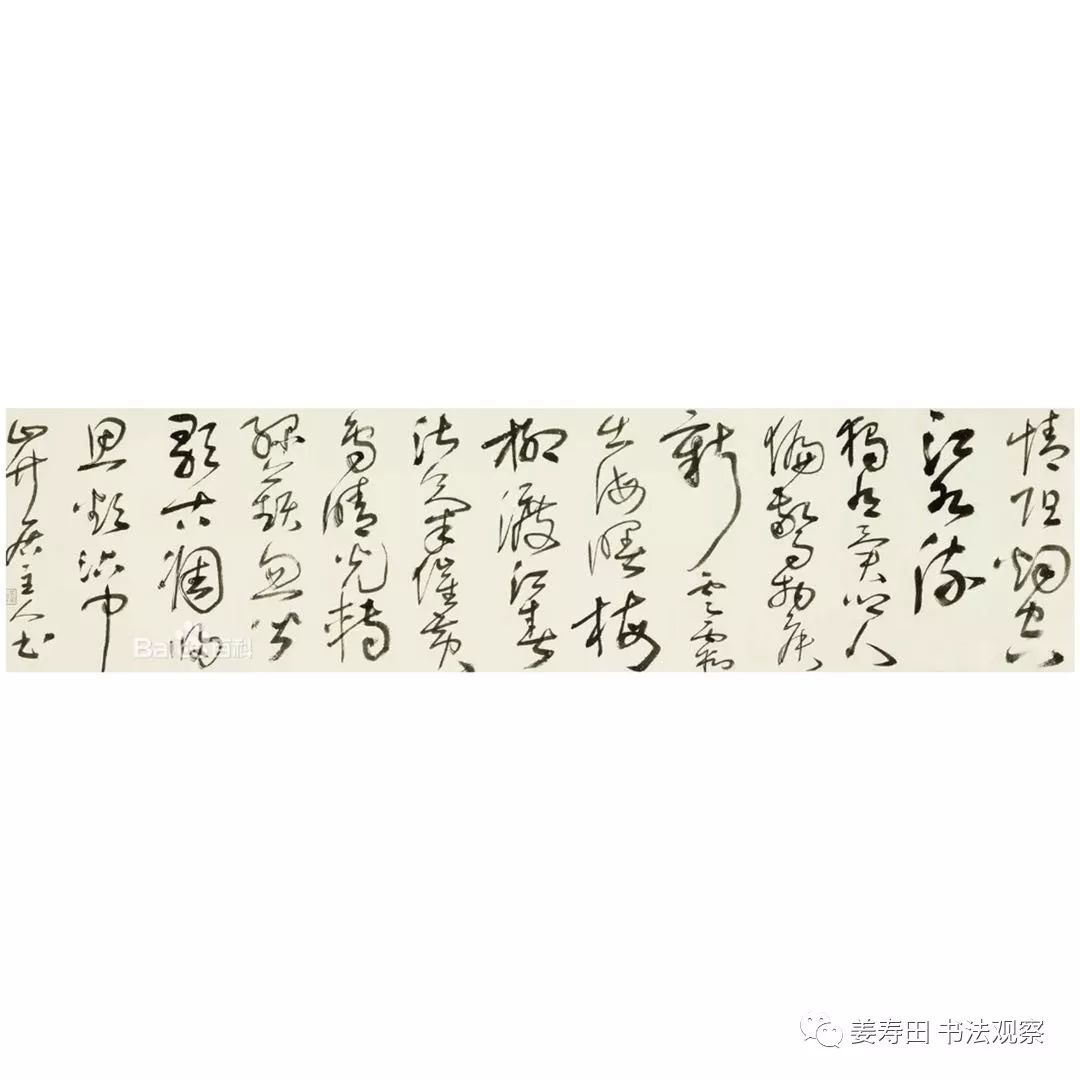 江水流
独有宦游人
偏惊物候
新云霞
出海曙梅
柳渡江春
淑气催黄
鸟晴光转
绿蘋忽闻
歌古调归
思欲沾巾
居主人书
Baidu百科
姜寿田 书法观察